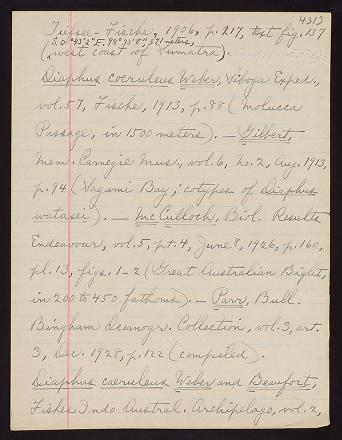 4313
Tiefsee-Fische, 1906, p. 217, text fig. 137
S. 0°43'2" E. 98°43'8", 371 meters,
(west coast of Sumatra).
Diaphus coeruleus Weber, Siboga Exped.,
vol. 57, Fische, 1913, p. 88 (Molucca
Passage, in 1500 meters). — Gilbert,
Mem. Carnegie Mus., vol. 6, No. 2, Aug. 1913,
p. 94 (Sagami Bay; cotypes of Diaphus
watasei). — McCulloch, Biol. Results
Endeavour, vol. 5, pt. 4, June 8, 1926, p. 160,
pl. 13, figs. 1-2 (Great Australian Bight,
in 200 to 450 fathoms). — Parr, Bull.
Bingham Oceanogr. Collection, vol. 3, art.
3, Dec. 1928, p. 122 (compiled).
Diaphus caeruleus Weber and Beaufort,
Fishes Indo Austral. Archipelago, vol. 2,